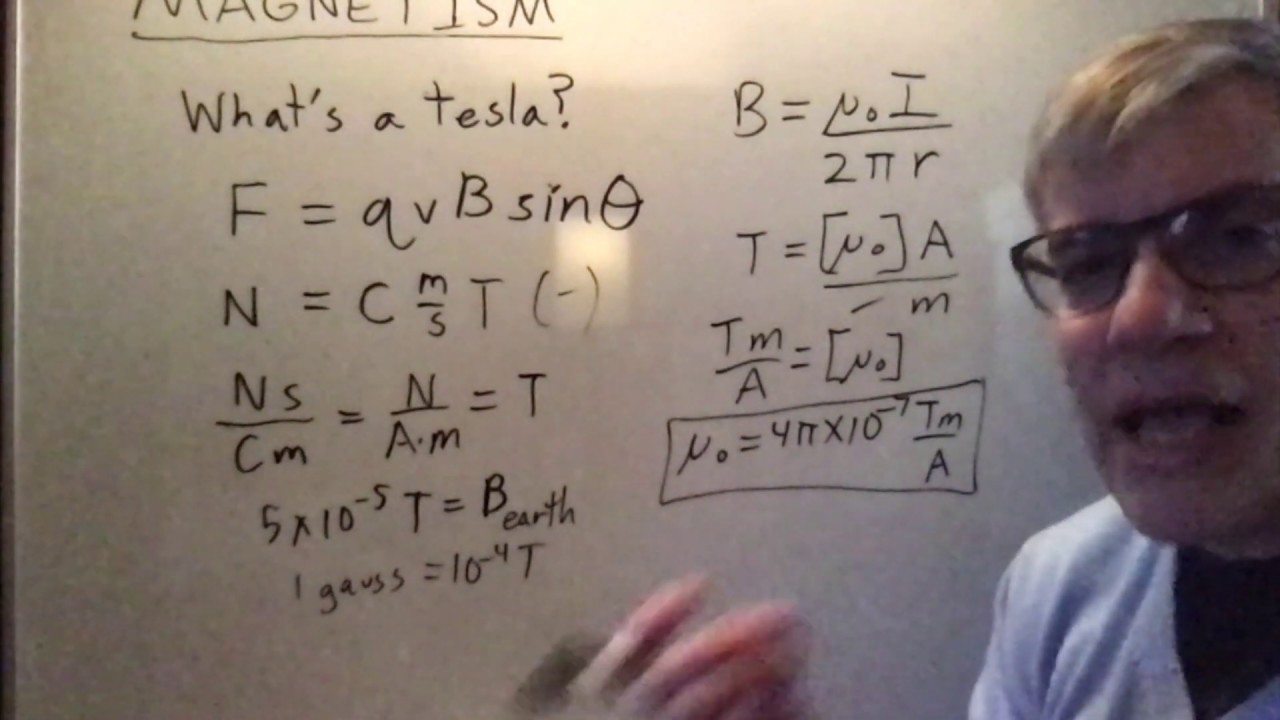 MAGNETISM
What's a tesla?
F = qvB sinθ
N = C m/s T (-)
Ns/Cm = N/A·m = T
5×10⁻⁵ T = Bearth
1 gauss = 10⁻⁴ T
B = μ₀I/2πr
T = [μ₀] A/m
Tm/A = [μ₀]
μ₀ = 4π×10⁻⁷ Tm/A